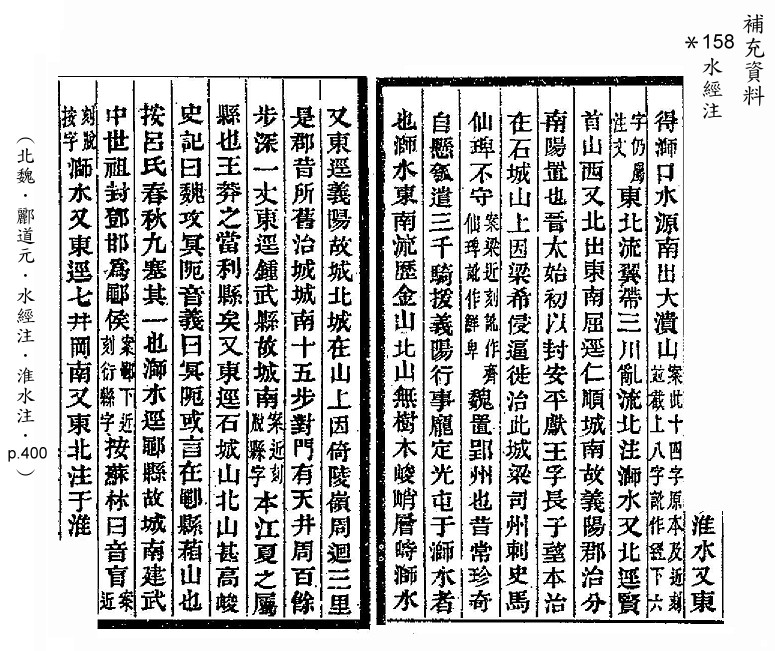 補充資料
*158水經注
淮水又東
得溮口水源南出大潰山案此十四字原本及近刻竝截上八字訛作經下六
字仍屬注文東北流翼帶三川亂流北注溮水又北逕賢
首山西又北出東南屈逕仁順城南故義陽郡治分
南陽置也晉太始初以封安平獻王孚長子望本治
在石城山上因梁希侵逼徙治此城梁司州刺史馬
仙琕不守案梁近刻訛作齊仙琕訛作鮮卑魏置郢州也昔常珍奇
自懸瓠遣三千騎援義陽行事龐定光屯于溮水者
也溮水東南流歷金山北山無樹木峻峭層峙溮水
又東逕義陽故城北城在山上因倚陵嶺周迴三里
是郡昔所舊治城城南十五步對門有天井周百餘
步深一丈東逕鍾武縣故城南案近刻脫縣字本江夏之屬
縣也王莽之當利縣矣又東逕石城山北山甚高峻
史記曰魏攻冥阨音義曰冥阨或言在鄳縣葙山也
按呂氏春秋九塞其一也溮水逕鄳縣故城南建武
中世祖封鄧邯為鄳侯案鄳下近刻衍縣字按蘇林曰音盲案近
刻脫按字溮水又東逕七井岡南又東北注于淮
(北魏.酈道元.水經注.淮水注.p.400)